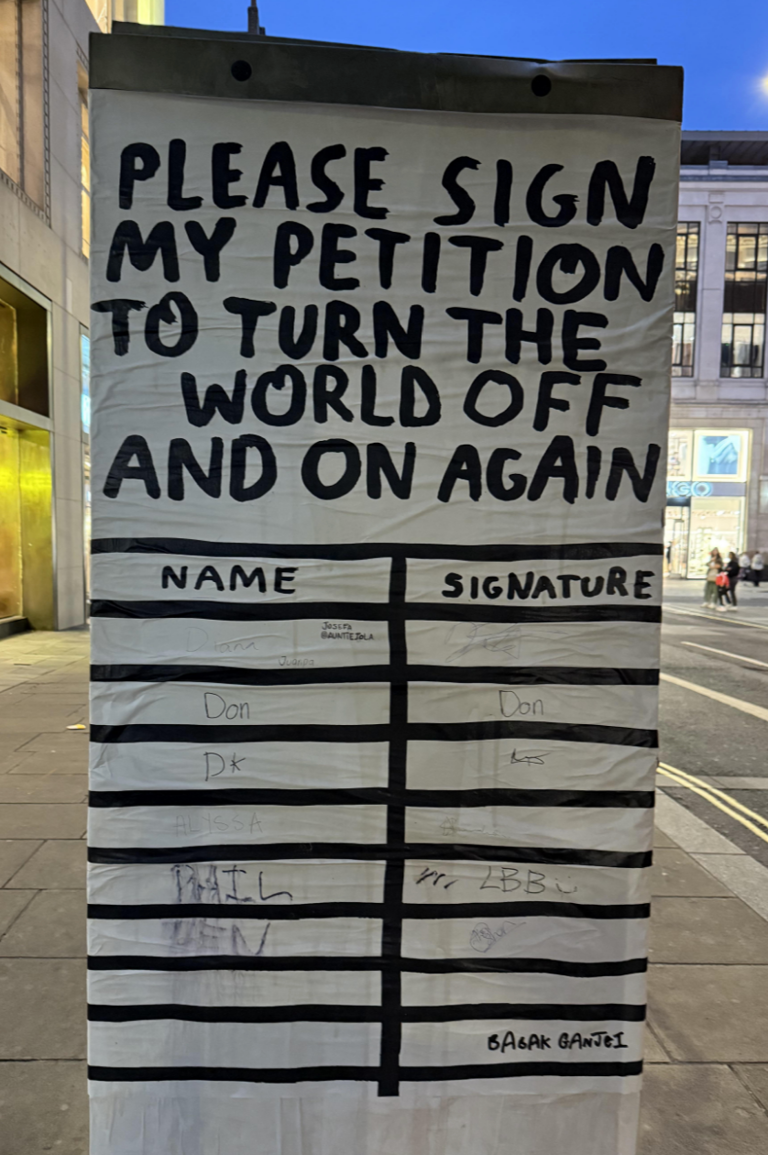 PLEASE SIGN
MY PETITION
TO TURN THE
WORLD OFF
AND ON AGAIN
NAME SIGNATURE
Diann
JOSEFA
@AUNTTEJOLA
Juanpa
Don Don
DK
ALYSSA
PHIL LBB
VEN
BABAK GANJEI
GO